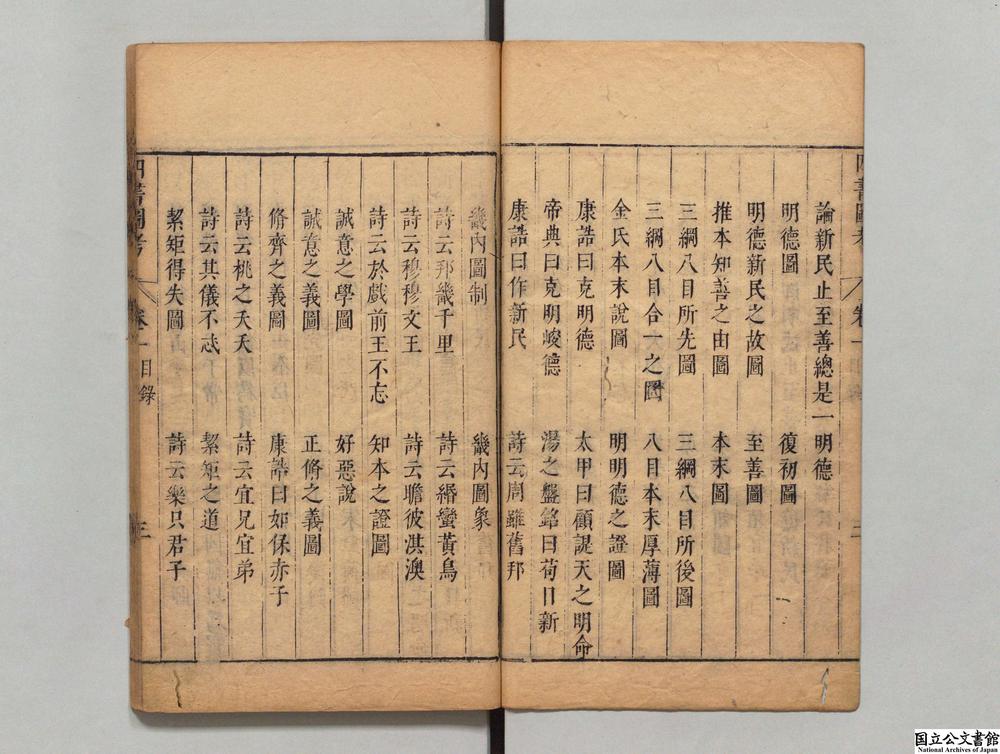 論新民止至善總是一明德
明德圖　復初圖
明德新民之故圖　至善圖
推本知善之由圖　本末圖
三綱八目所先圖　三綱八目所後圖
三綱八目合一之圖　八目本末厚薄圖
金氏本末說圖　明明德之證圖
康誥曰克明德　太甲曰顧諟天之明命
帝典曰克明峻德　湯之盤銘曰苟日新
康誥曰作新民　詩云周雖舊邦
畿內圖制　畿內圖象
詩云邦畿千里　詩云緡蠻黃鳥
詩云穆穆文王　詩云瞻彼淇澳
詩云於戲前王不忘　知本之證圖
誠意之學圖　好惡說
誠意之義圖　正脩之義圖
脩齊之義圖　康誥曰如保赤子
詩云桃之夭夭　詩云宜兄宜弟
詩云其儀不忒　絜矩之道
絜矩得失圖　詩云樂只君子
四書圖考　卷一目錄　三
国立公文書館
National Archives of Japan